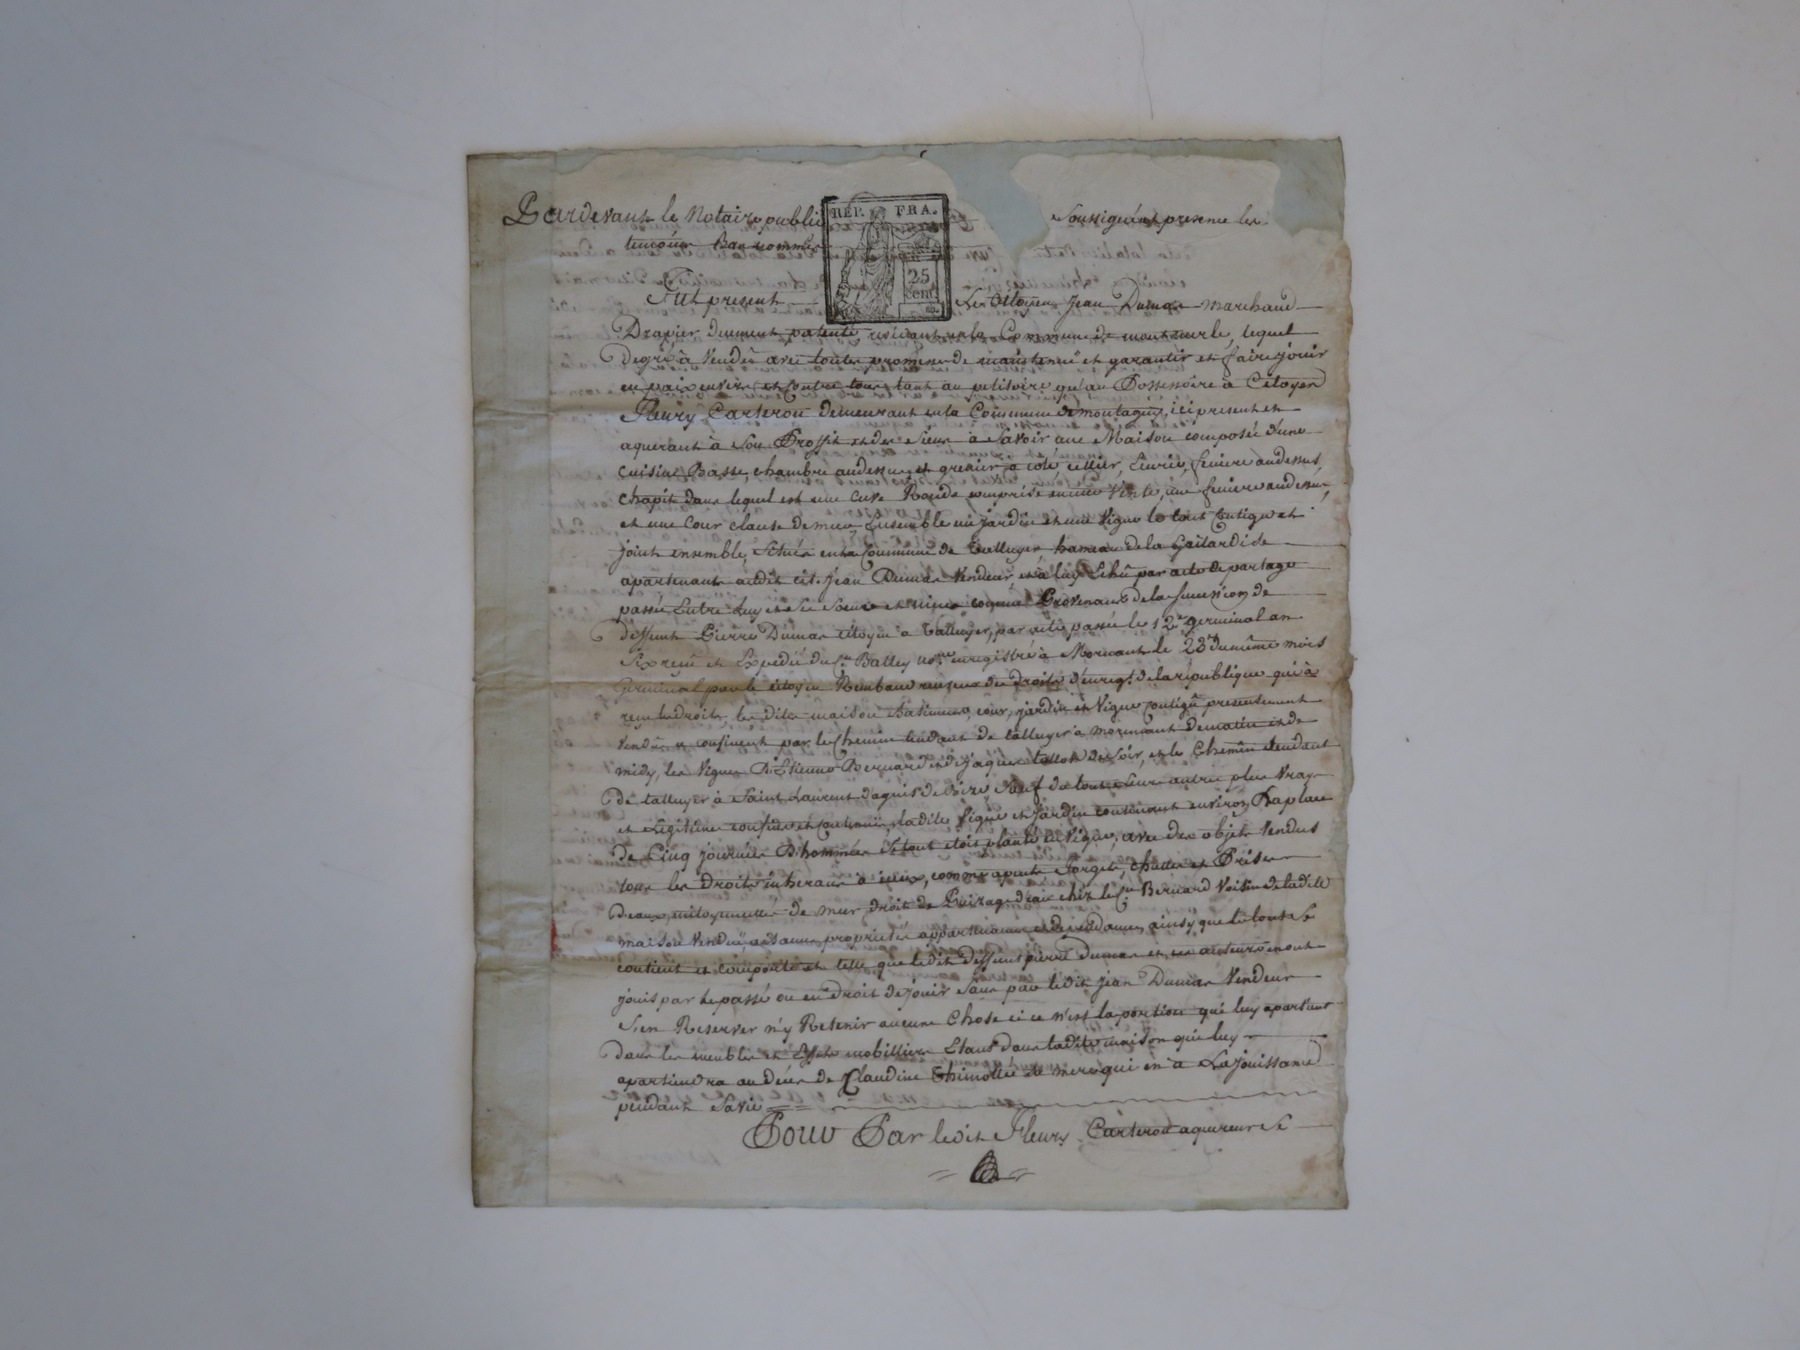 Pardevant le Notaire public soussigné et presence les
temoins bas nommés
REP. FRA.
25
Cent.
Fut present Le Citoyen Jean Dumas marchand
Drapier duement patenté, residant en la Commune de montmerle, lequel
degré à Vendû avec toutes promesse de maintenue et garantir et faire jouir
en paix envers et contre tous tant au petitoire qu'au Possessoire à Citoyen
Fleury Carteron demeurant en la Commune de montagny, ici present et
aquerant à son Proffit et des siens à savoir une Maison composée d'une
cuisine Basse, chambre audessus et grenier a coté, cellier, Ecurie, feniere audessus,
chapit dans lequel est une cuve Ronde comprise en cette Vente, une feniere audessus,
et une Cour clause de murs Ensemble un jardin et une Vigne le tout Contigue et
joint ensemble, Situés en la Commune de Talluyer, hameau de la Gaitardise
apartenants audit cit. Jean Dumas Vendeur et à luy Echû par acte de partage
passé Entre luy et ses Soeurs et nieces Provenant de la succession de
deffunt Pierre Dumas citoyen a Talluyer, par acte passée le 12e germinal an
Six reçu et Expedié du Cn Balley nore enregistré à Mornant le 28 du même mois
Germinal par le citoyen Rembaud receveur des droits d'enregt de la république qui à
reçu les droits, les dits maison Batiments, cour, jardin et Vigne contiguë presentement
Vendûs se confinent par le Chemin tendant de talluyer à mornant de matin et de
midy, les Vignes d'Etienne Bernard et de Jaques tallon de soir, et le Chemin tendant
de talluyer à Saint Laurent dagnis de Bize, Sauf de tous Leurs autres plus Vrays
et Legitimes confins et contenuë, ladite Vigne et jardin contenant environ l'aplace
de Cinq journées D'hommes si tout etois planté en Vigne, avec des objets Vendus
tous les droits inherans à iceux, comme apents forgets, chutte et Prise
d'eaux, mitoyenneté de mur, droit de Puizage d'eau chez le Cn Bernard Voisin de ladite
maison Venduë, aisances, proprietés appartenances et dependances, ainsy que le tout se
contient et comporte et telle que ledit deffunt pierre Dumas et ses auteurs en ont
jouis par le passé ou eu droit de jouir sans par ledit jean Dumas Vendeur
S'en Reserver n'y Retenir aucune Chose si ce n'est la portion qui luy apartient
dans les meubles et Effets mobilliers Etant dans ladite maison qui luy
apartiendra au décès de Claudine Thimollée sa mere qui en à La jouissance
pendant Savie
Pouv Par ledit Fleury Carteron aquereur Se